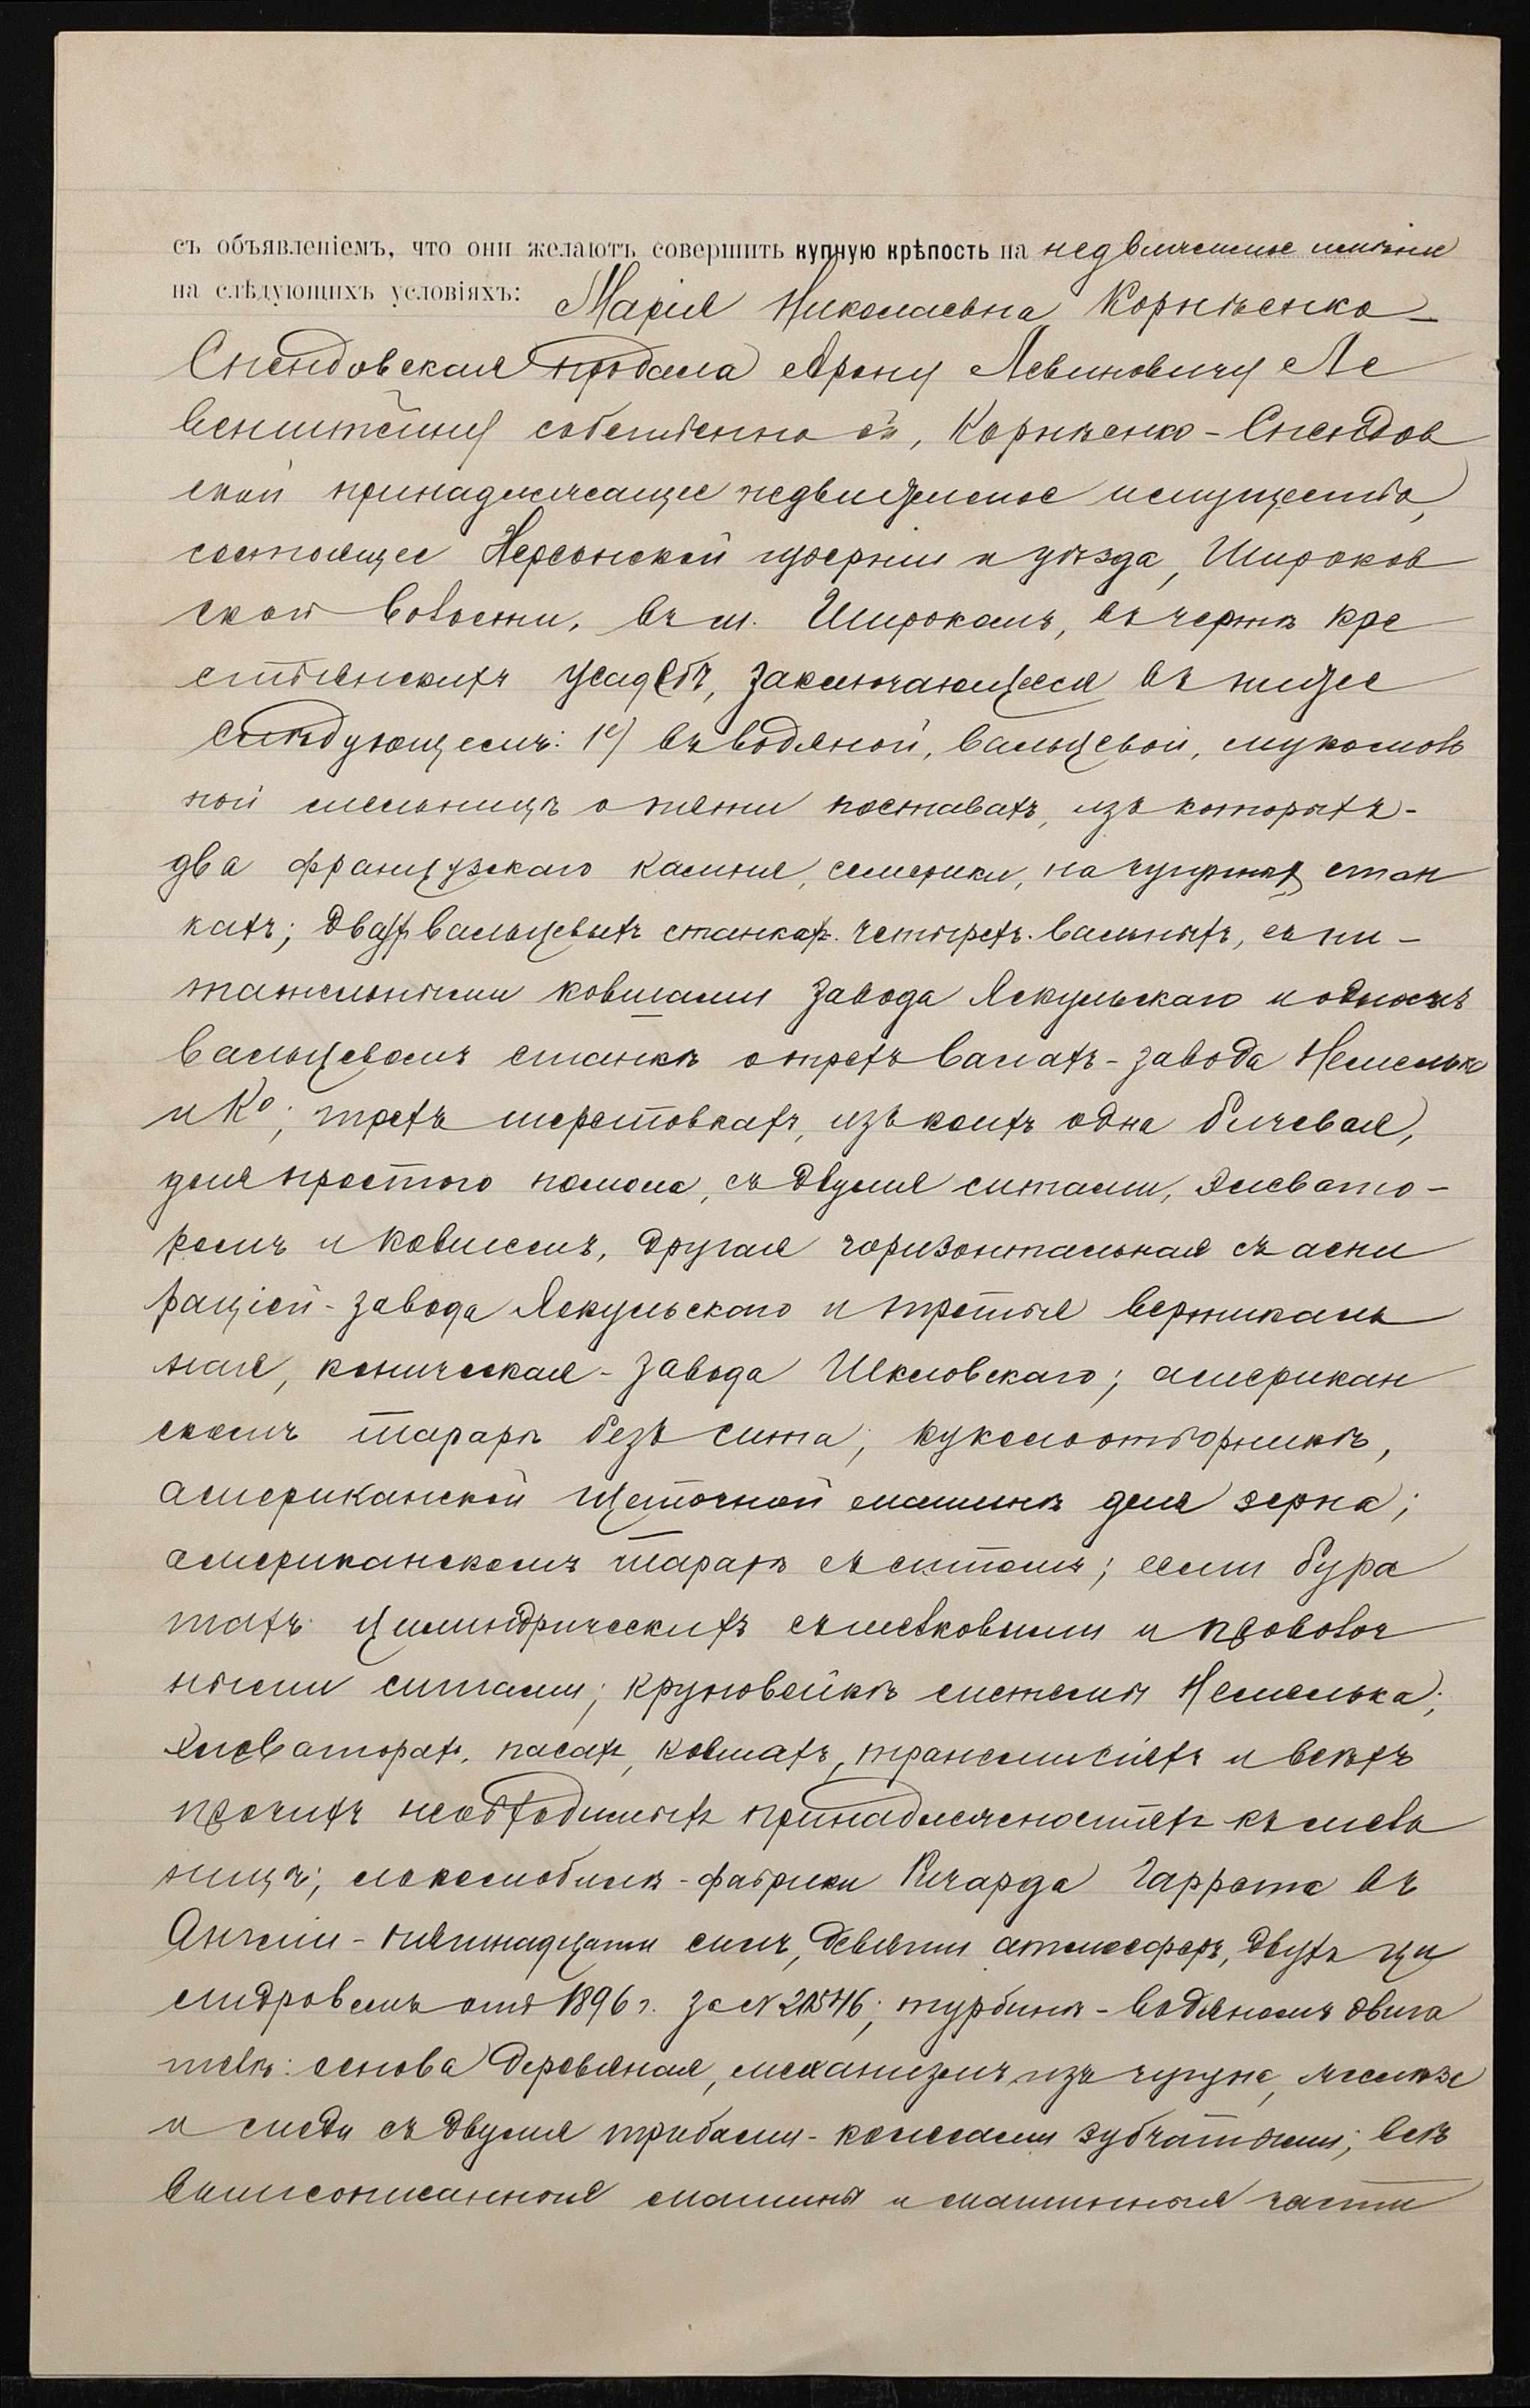 съ объявленіемъ, что они желаютъ совершить купчую крѣпость на недвижимое имѣніе
на слѣдующихъ условіяхъ: Марія Николаевна Корнѣенко-
Снендовская продала Арону Левиновичу Ле
венштейну собственно ей, Корнѣенко-Снендов
ской принадлежащее недвижимое имущество,
состоящее Херсонской губерніи и уѣзда, Широков
ской волости, въ м. Широкомъ, въ чертѣ кре
стьянскихъ усадебъ, заключающееся въ ниже
слѣдующемъ: 1е) въ водяной, вальцевой, мукомоль
ной мельницѣ о пяти поставахъ, изъ которыхъ-
два французскаго камня, семерики, на чугунныхъ стан
кахъ; двухъ вальцевыхъ станкахъ четырехъ вальныхъ, съ пи-
тательными ковшами завода Якульскаго и одномъ
вальцевомъ станкѣ о трехъ валахъ-завода Немелька
и Ко; трехъ шеретовкахъ, изъ коихъ одна бичевая,
для простого помола, съ двумя ситами, элевато-
ромъ и ковшемъ, другая горизонтальная съ аспи
раціей-завода Якульскаго и третья вертикаль
ная, коническая-завода Шкловскаго; американ
скомъ тарарѣ безъ сита; куколеотборникѣ,
американской щеточной машинѣ для зерна;
американскомъ тарарѣ съ ситомъ; семи бура
тахъ цилиндрическихъ съ шелковыми и проволоч
ными ситами; круповейкѣ системы Немелька;
элеваторахъ, пасахъ, ковшахъ, трансмисіяхъ и всѣхъ
прочихъ необходимыхъ принадлежностяхъ къ мель
ницѣ; локомобилѣ-фабрики Ричарда Гаррета въ
Англіи-пятнадцати силъ, девяти атмосферъ, двухъ ци
лидровомъ отъ 1896 г. за № 20546; турбинѣ-водяномъ двига
телѣ: основа деревяная, механизмъ изъ чугуна, желѣза
и мѣди съ двумя трибами-колесами зубчатыми; всѣ
вышеописанныя машины и машинныя части